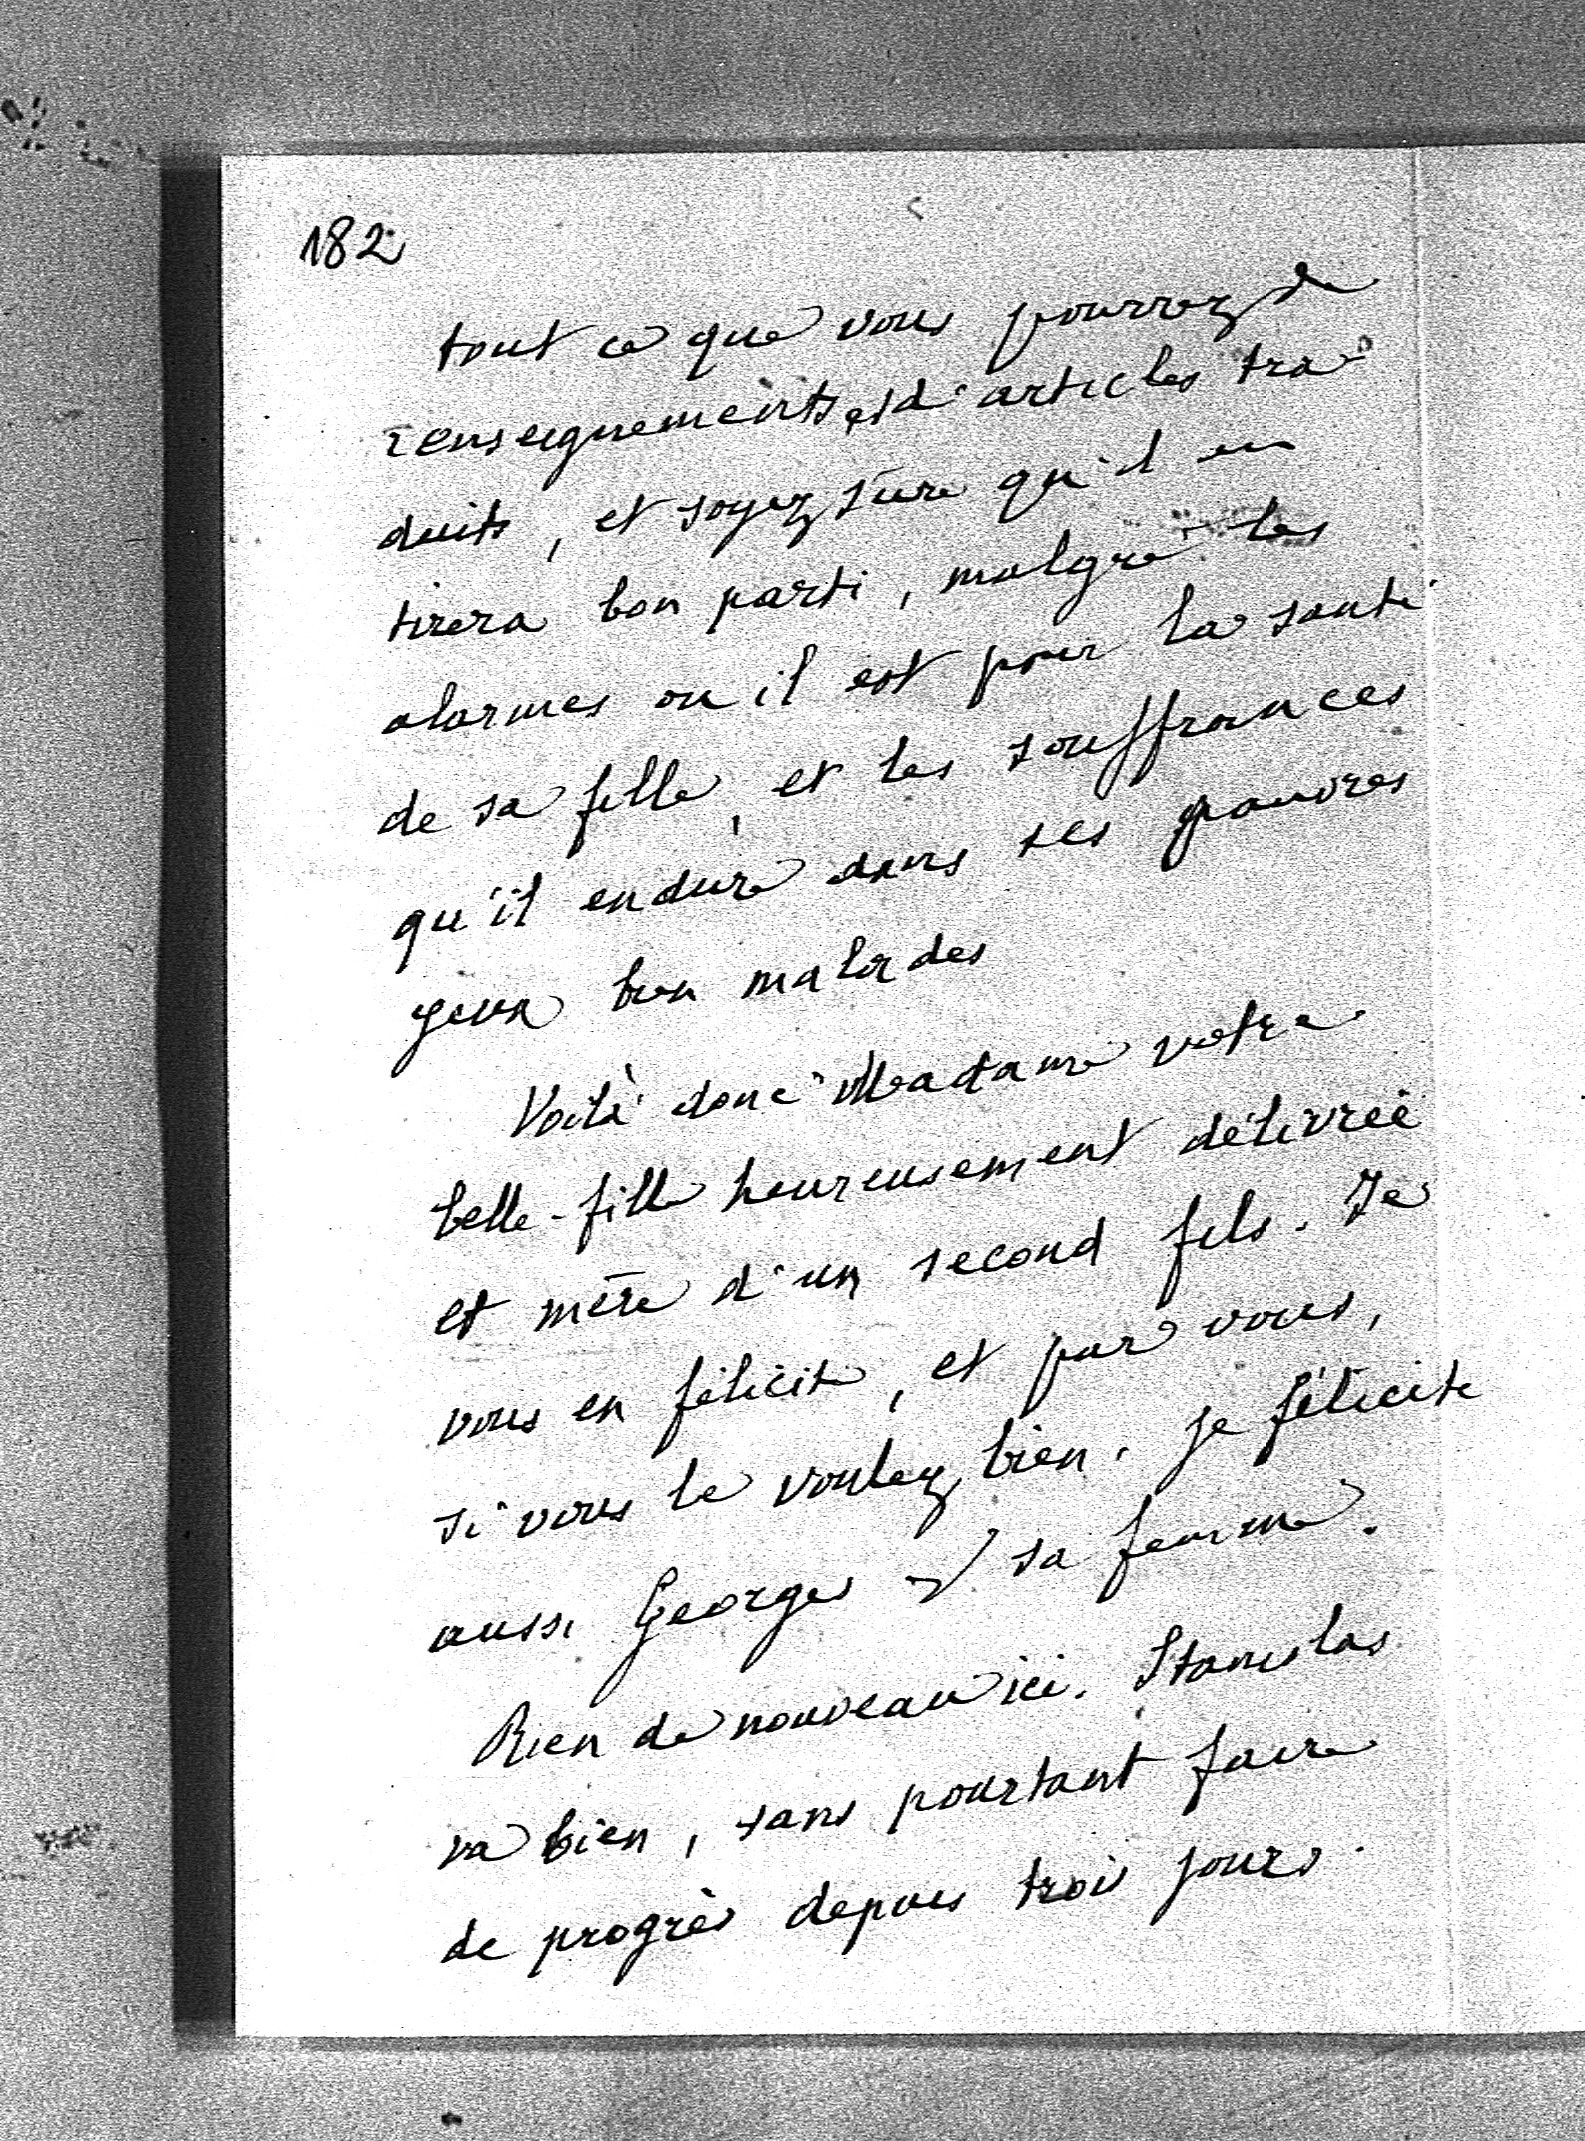 182
tout ce que vous pourrez de
renseignements, et d'articles tra-
duits, et soyez sûre qu'il en
tirera bon parti, malgré les
alarmes ou il est pour la santé
de sa fille, et les souffrances
qu'il endure dans ses pauvres
yeux bien malades
Voilà donc Madame votre
belle-fille heureusement délivrée
et mère d'un second fils. Je
vous en félicite, et par vous,
si vous le voulez bien, je félicite
aussi Georges & sa femme.
Rien de nouveau ici. Stanislas
va bien, sans pourtant faire
de progrès depuis trois jours.